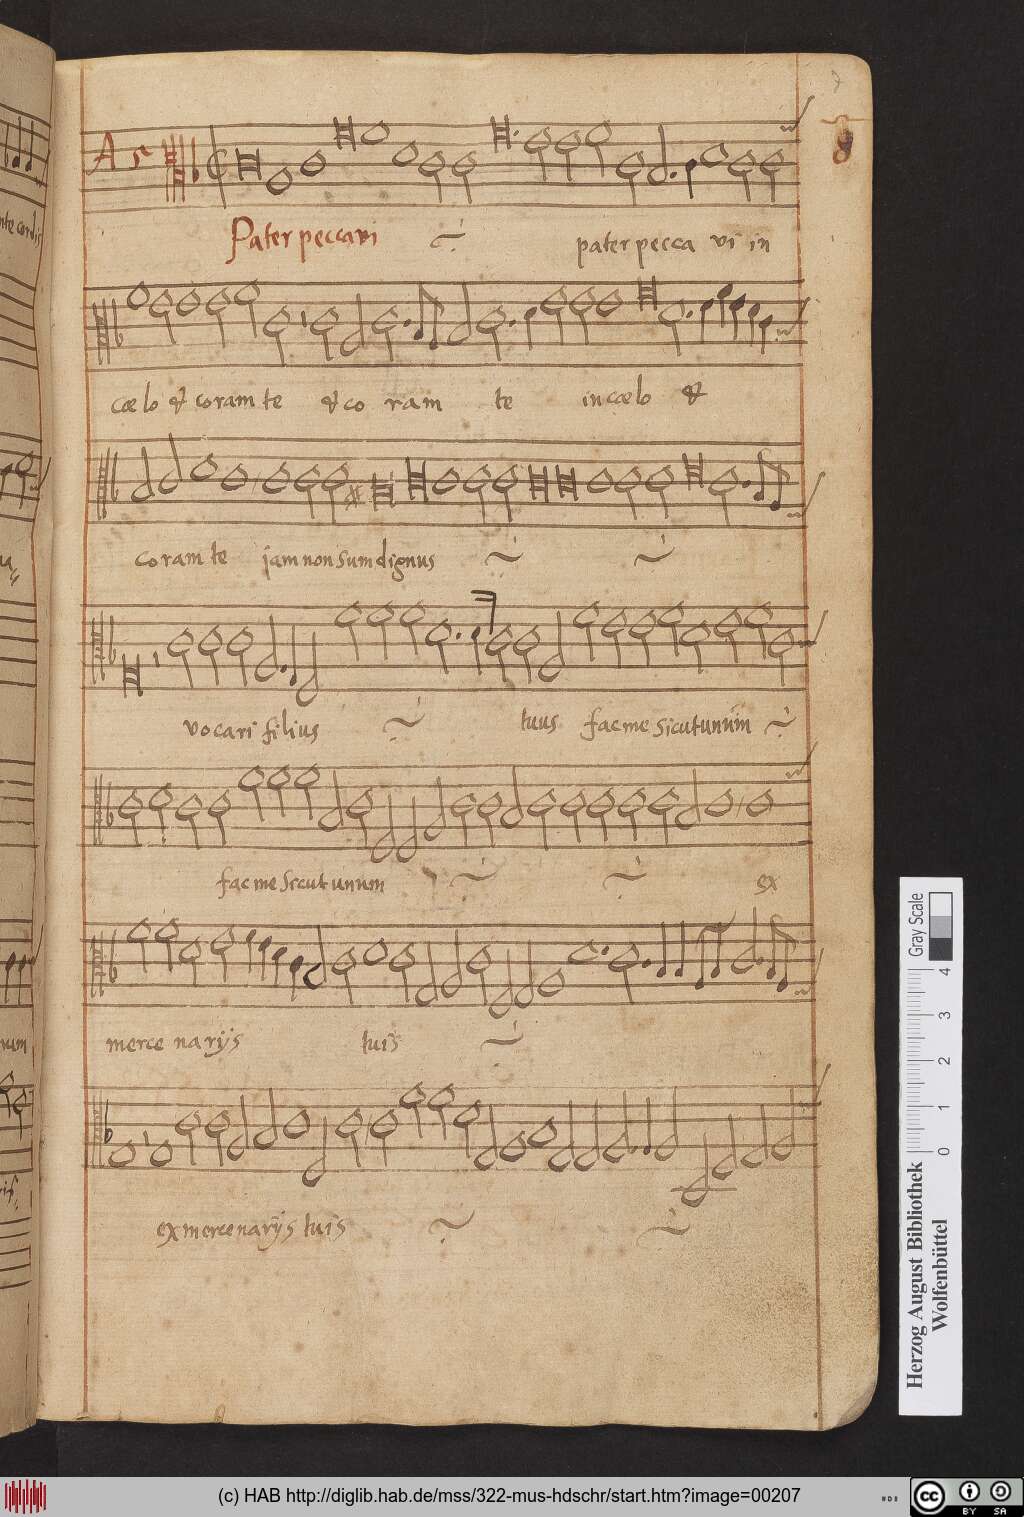 7
A 5
8
Pater peccavi pater pecca vi in
cœlo & coram te & co ram te in cœlo &
coram te jam non sum dignus
vocari filius tuus fac me sicut unum
fac me sicut unum ex
merce narijs tuis
ex mercenarijs tuis
Gray Scale
0 1 2 3 4
Herzog August Bibliothek
Wolfenbüttel
(c) HAB http://diglib.hab.de/mss/322-mus-hdschr/start.htm?image=00207
cc BY SA